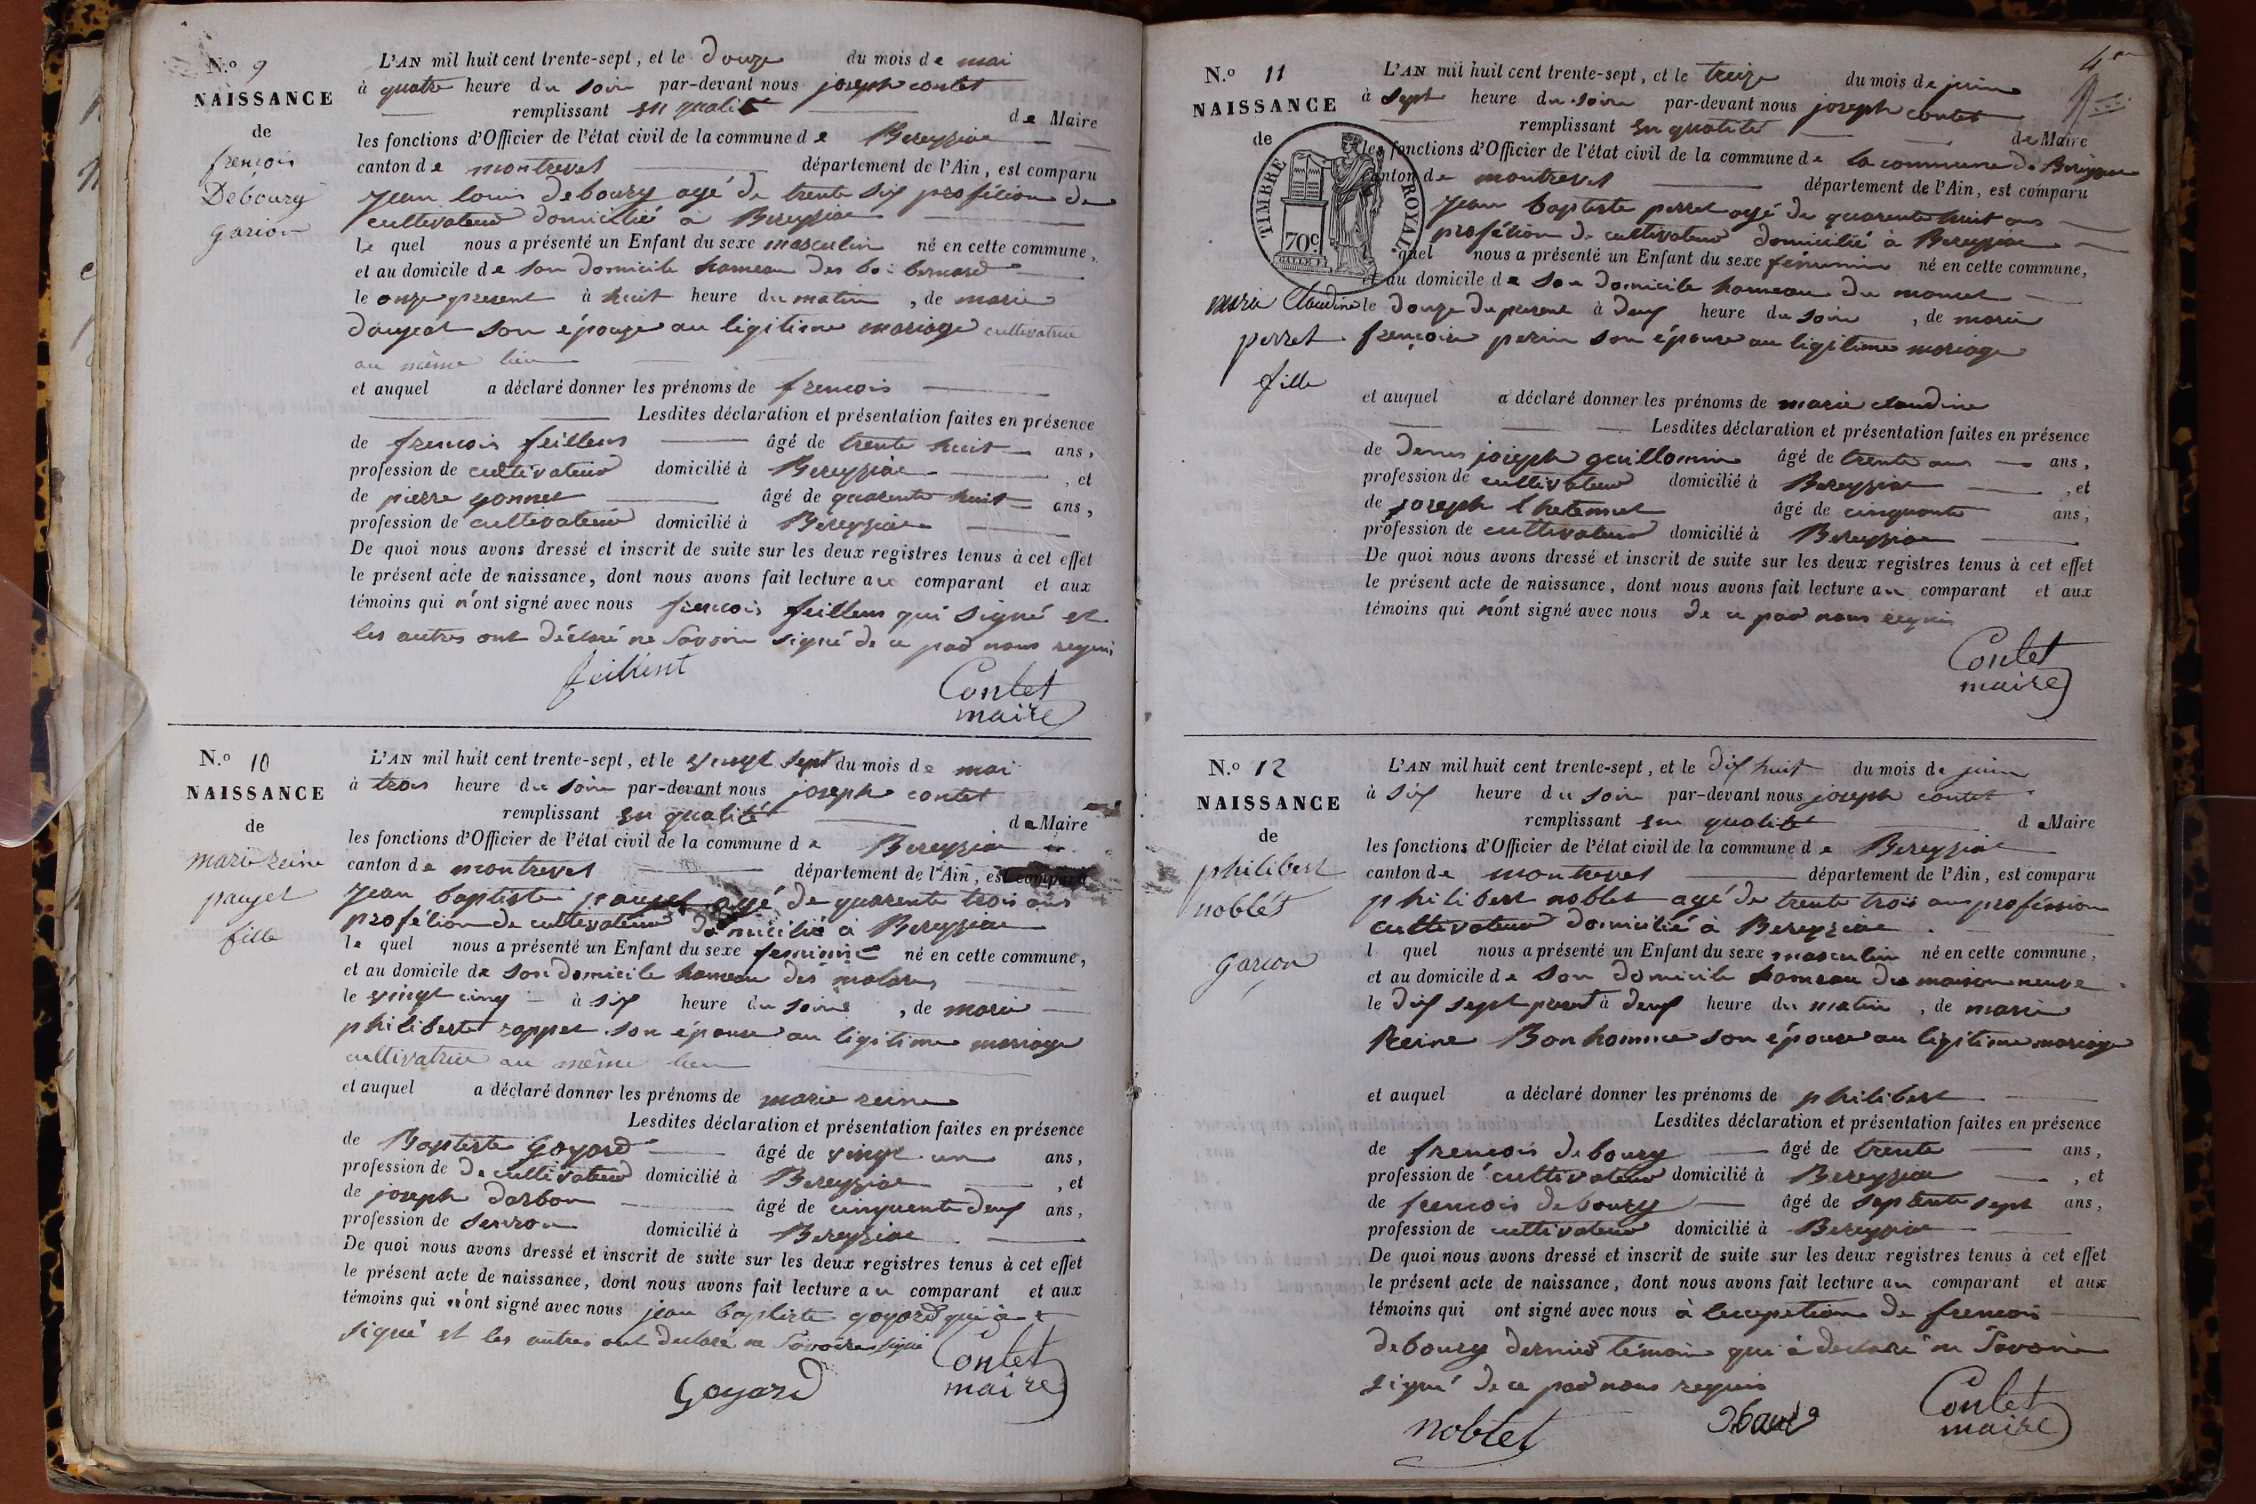 N.º 9
NAISSANCE
de
françois
Debourg
garion
L'AN mil huit cent trente-sept, et le douze du mois de mai
à quatre heure du soir par-devant nous joseph contet
remplissant en qualité de Maire
les fonctions d'Officier de l'état civil de la commune de Bereyziat
canton de montrevel département de l'Ain, est comparu
jean louis debourg agé de trente six profétion de
cultivateur domicilié à Bereyziat
le quel nous a présenté un Enfant du sexe masculin né en cette commune,
et au domicile de son domicile hameau des bernard
le onze present à huit heure du matin, de marie
son épouze au ligitime mariage cultivatrice
au même lieu
et auquel a déclaré donner les prénoms de frencois
Lesdites déclaration et présentation faites en présence
de frencois feillens âgé de trente huit ans,
profession de cultivateur domicilié à Bereyziat, et
de pierre gonnet âgé de quarente huit ans,
profession de cultivateur domicilié à Bereyziat
De quoi nous avons dressé et inscrit de suite sur les deux registres tenus à cet effet
le présent acte de naissance, dont nous avons fait lecture au comparant et aux
témoins qui n'ont signé avec nous frencois feillens qui signé et
les autres ont déclaré ne savoir signé de ce par nous requis
feillent
Contet
maire
N.º 10
NAISSANCE
de
marie reine
pauget
fille
L'AN mil huit cent trente-sept, et le vingt sept du mois de mai
à trois heure du soir par-devant nous joseph contet
remplissant en qualité de Maire
les fonctions d'Officier de l'état civil de la commune de Bereyziat
canton de montrevel département de l'Ain, est comparu
jean baptiste pauget agé de quarente trois ans
profétion de cultivateur domicilié à Bereyziat
le quel nous a présenté un Enfant du sexe feminine né en cette commune,
et au domicile de son domicile hameau des molares
le vingt cinq à six heure du soire, de marie
philiberte son épouse au ligitime mariage
cultivatrice au même lieu
et auquel a déclaré donner les prénoms de marie reine
Lesdites déclaration et présentation faites en présence
de Baptiste Goyard âgé de vingt un ans,
profession de de cultivateur domicilié à Bereyziat, et
de joseph darbon âgé de cinquente deux ans,
profession de domicilié à Bereyziat
De quoi nous avons dressé et inscrit de suite sur les deux registres tenus à cet effet
le présent acte de naissance, dont nous avons fait lecture au comparant et aux
témoins qui n'ont signé avec nous jean baptiste goyard qui à
signé et les autres ont declaré ne savoire signé
Goyard
Contet
maire
N.º 11
NAISSANCE
de
TIMBRE ROYAL
70c
maria Claudine
perret
fille
L'AN mil huit cent trente-sept, et le treize du mois de juin
à sept heure du soire par-devant nous joseph contet
remplissant en qualité de Maire
les fonctions d'Officier de l'état civil de la commune de la commune de Bereyziat
canton de montrevel département de l'Ain, est comparu
jean baptiste perret agé de quarente huit ans
profétion de cultivateur domicilié à Bereyziat
quel nous a présenté un Enfant du sexe féminin né en cette commune,
et au domicile de son domicile hameau du moncet
le douze du present à deux heure du soir, de marie
françoise perin son épouse au ligitime mariage
et auquel a déclaré donner les prénoms de marie claudine
Lesdites déclaration et présentation faites en présence
de Denis joseph guillomin âgé de trente ans ans,
profession de cultivateur domicilié à Bereyziat, et
de joseph âgé de cinquante ans,
profession de cultivateur domicilié à Bereyziat
De quoi nous avons dressé et inscrit de suite sur les deux registres tenus à cet effet
le présent acte de naissance, dont nous avons fait lecture au comparant et aux
témoins qui n'ont signé avec nous de ce par nous requis
Contet
maire
N.º 12
NAISSANCE
de
philibert
noblet
garion
L'AN mil huit cent trente-sept, et le dix huit du mois de juin
à six heure du soir par-devant nous joseph contet
remplissant en qualité de Maire
les fonctions d'Officier de l'état civil de la commune de Bereyziat
canton de montrevel département de l'Ain, est comparu
philibert noblet agé de trente trois ans profession
cultivateur domicilié à Bereyziat
l quel nous a présenté un Enfant du sexe masculin né en cette commune,
et au domicile de son domicile hameau de maison neuve
le dix sept present à deux heure du matin, de marie
Reine Bonhomme son épouse au ligitime mariage
et auquel a déclaré donner les prénoms de philibert
Lesdites déclaration et présentation faites en présence
de frencois debourg âgé de trente ans,
profession de cultivateur domicilié à Bereyziat, et
de frencois debourg âgé de septente sept ans,
profession de cultivateur domicilié à Bereyziat
De quoi nous avons dressé et inscrit de suite sur les deux registres tenus à cet effet
le présent acte de naissance, dont nous avons fait lecture au comparant et aux
témoins qui ont signé avec nous à lexception de frencois
debourg dernier témoin qui à declaré ne savoir
signé de ce par nous requis
noblet
Contet
maire